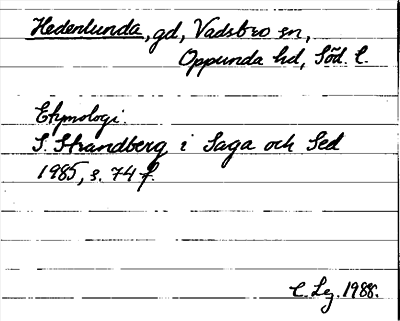 Hedenlunda, gd, Vadsbro sn,
Oppunda hd, Söd. l.
Etymologi.
S. Strandberg i Saga och Sed
1985, s. 74 f.
C. Lg. 1988.